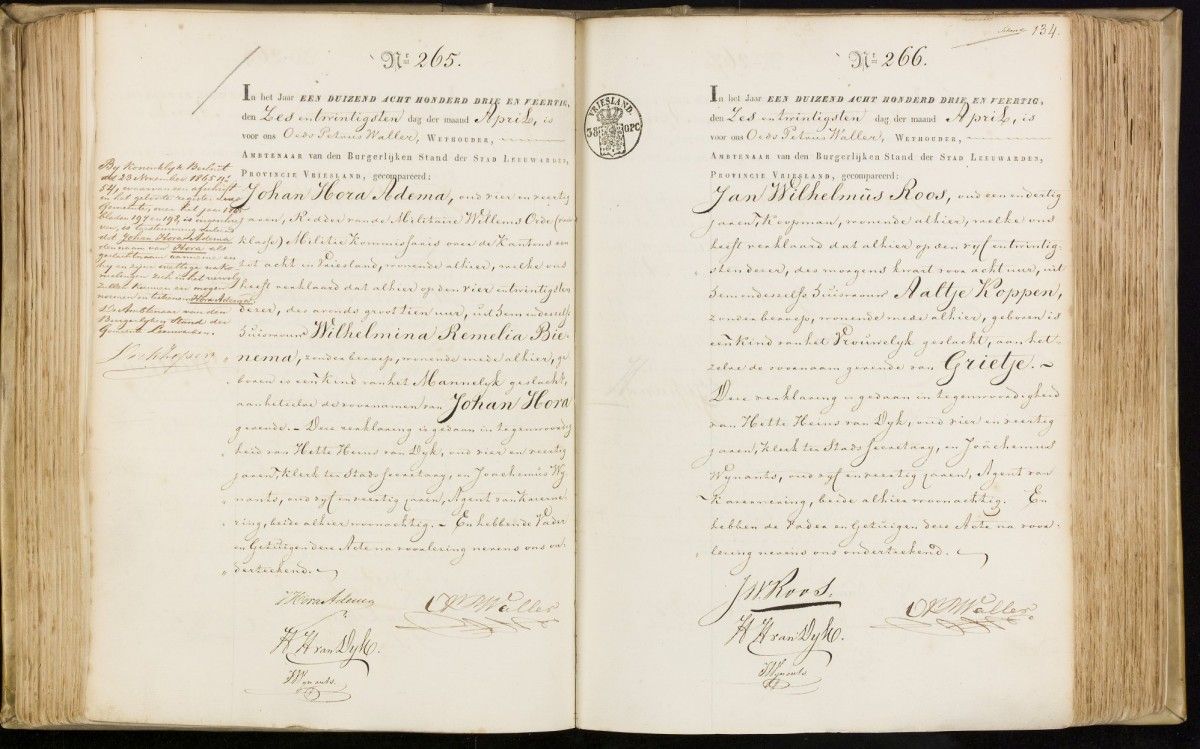 Nr 265.
In het Jaar EEN DUIZEND ACHT HONDERD DRIE EN VEERTIG,
den Zes entwintigsten dag der maand April, is
voor ons Oeds Petrus Waller, WETHOUDER,
AMBTENAAR van den Burgerlijken Stand der STAD LEEUWARDEN,
PROVINCIE VRIESLAND, gecompareerd:
Johan Hora Adema, oud vier en veertig
jaren, Ridder van de Militaire Willems Orde
klasse) Militie Kommissaris voor de Kantons een
tot acht in Vriesland, wonende alhier, welke ons
heeft verklaard dat alhier op den vier entwintigsten
dezer, des avonds groot tien uur, uit Hem en deszelfs
Huisvrouw Wilhelmina Remelia Bie-
nema, zonder beroep, wonende mede alhier, ge
boren is een Kind van het Mannelyk geslacht,
aan hetzelve de voornamen van Johan Hora
gevende. - Deze verklaring is gedaan in tegenwoordig
heid van Hette Heins van Dyk, oud vier en veertig
jaren, Klerk ter Stads Secretary, en Joachemus Wy
nants, oud vyf en veertig jaren, Agent van Kazerne
ring, beide alhier woonachtig. - En hebben de Vader
en Getuigen deze Acte na voorlezing nevens ons on-
derteekend.
By Koninklyk Besluit
des 23 November 1865 No
54, waarvan een afschrift
in het geboorte register dezer
Gemeente, over het jaar
bladen 197 en 198, is ingeschre
ven, is toestemming verleend
dat Johan Hora Adema
den naam van Hora als
geslachtnaam aanneme en
hy en zyne wettige nako-
melingen zich in het vervolg
zullen kunnen en mogen
noemen en teekenen Hora Adema
De Ambtenaar van den
Burgerlyken Stand der
Gemeente Leeuwarden.
JHora Adema
OP Waller
H H van Dyk.
JWynants.
134.
Nr 266.
VRIESLAND.
38 OPC
In het Jaar EEN DUIZEND ACHT HONDERD DRIE EN VEERTIG,
den Zes entwintigsten dag der maand April, is
voor ons Oeds Petrus Waller, WETHOUDER,
AMBTENAAR van den Burgerlijken Stand der STAD LEEUWARDEN,
PROVINCIE VRIESLAND, gecompareerd:
Jan Wilhelmüs Roos, oud een en dertig
jaren, Koopman, wonende alhier, welke ons
heeft verklaard dat alhier op den vyf entwintig-
sten dezer, des morgens kwart voor acht uur, uit
Hem en deszelfs Huisvrouw Aaltje Koppen,
zonder beroep, wonende mede alhier, geboren is
een Kind van het Vrouwelyk geslacht, aan het-
zelve de voornaam gevende van Grietje. -
Deze verklaring is gedaan in tegenwoordigheid
van Hette Heins van Dyk, oud vier en veertig
jaren, Klerk ter Stads Secretary, en Joachemus
Wynants, oud vyf en veertig jaren, Agent van
Kazernering, beide alhier woonachtig. En
hebben de Vader en Getuigen deze Acte na voor-
lezing nevens ons onderteekend.
JW Roos.
OP Waller
H H van Dyk.
JWynants